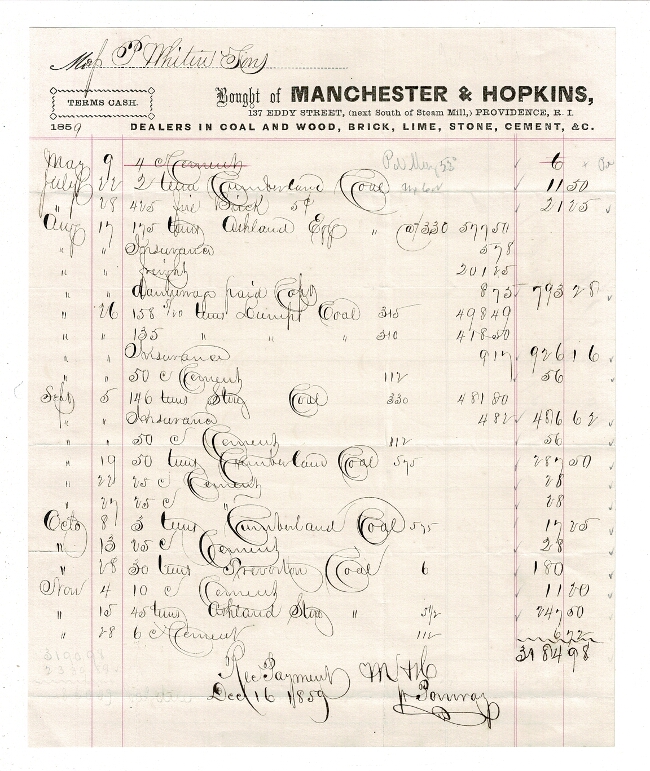 Mess P Whitin & Sons
Bought of MANCHESTER & HOPKINS,
TERMS CASH.
137 EDDY STREET, (next South of Steam Mill,) PROVIDENCE, R. I.
1859 DEALERS IN COAL AND WOOD, BRICK, LIME, STONE, CEMENT, &C.
May 9 4 c Cement 6
July 22 2 tons Cumberland Coal 11 50
" 28 425 fire Brick 5¢ 21 25
Aug 17 175 tons Ashland Egg " @/330 577 50
" " Insurance 5 78
" " freight 201 25
" " paid Capt 8 75 793 28
" 26 158 tons Lump Coal 315 498 49
" " 135 " " " 310 418 50
" " Insurance 9 17 926 16
" " 50 c Cement 112 56
Sept 5 146 tons Stmg Coal 330 481 80
" " Insurance 4 82 486 62
" " 50 c Cement 112 56
" 19 50 tons Cumberland Coal 575 287 50
" 22 25 c Cement 28
" 27 25 c " 28
Octo 8 3 tons Cumberland Coal 575 17 25
" 13 25 c Cement 28
" 28 30 tons Coal 6 180
Nov 4 10 c Cement 11 20
" 15 45 tons Ashland Stmg " 5/2 247 50
" 28 6 c Cement 112 6 72
3184 98
Rec Payment M & H
Dec 16 1859 p